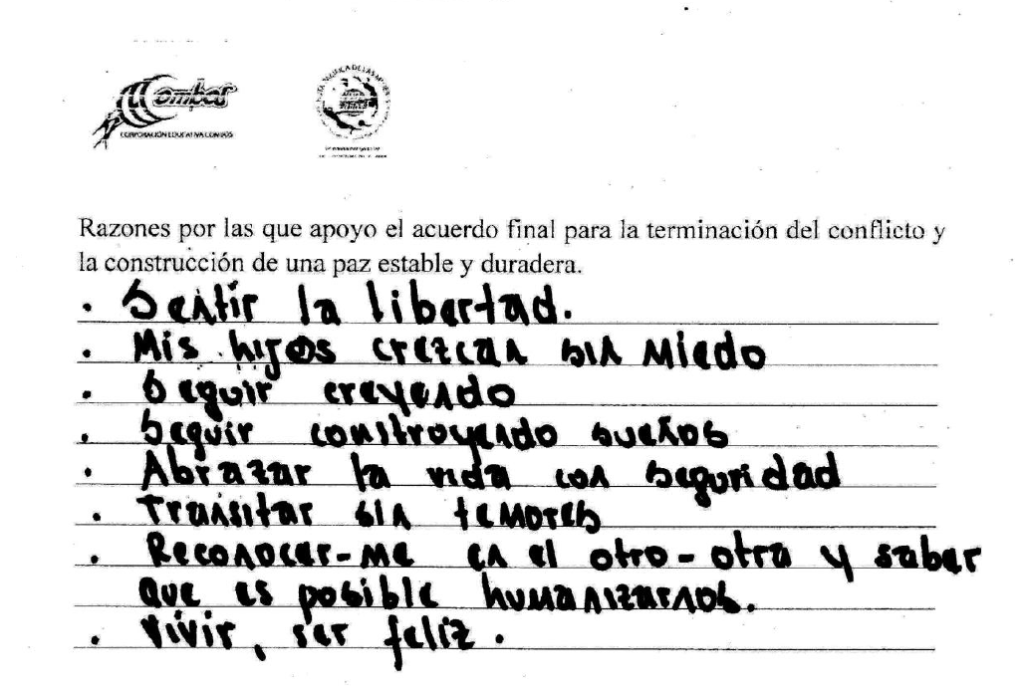 Combos
CORPORACIÓN EDUCATIVA COMBOS
Razones por las que apoyo el acuerdo final para la terminación del conflicto y
la construcción de una paz estable y duradera.
. Sentir la libertad.
. Mis hijos crezcan sin miedo
. Seguir creyendo
. Seguir construyendo sueños
. Abrazar la vida con seguridad
. Transitar sin temores
. Reconocer-me en el otro-otra y saber
que es posible humanizarnos.
. Vivir, ser feliz.